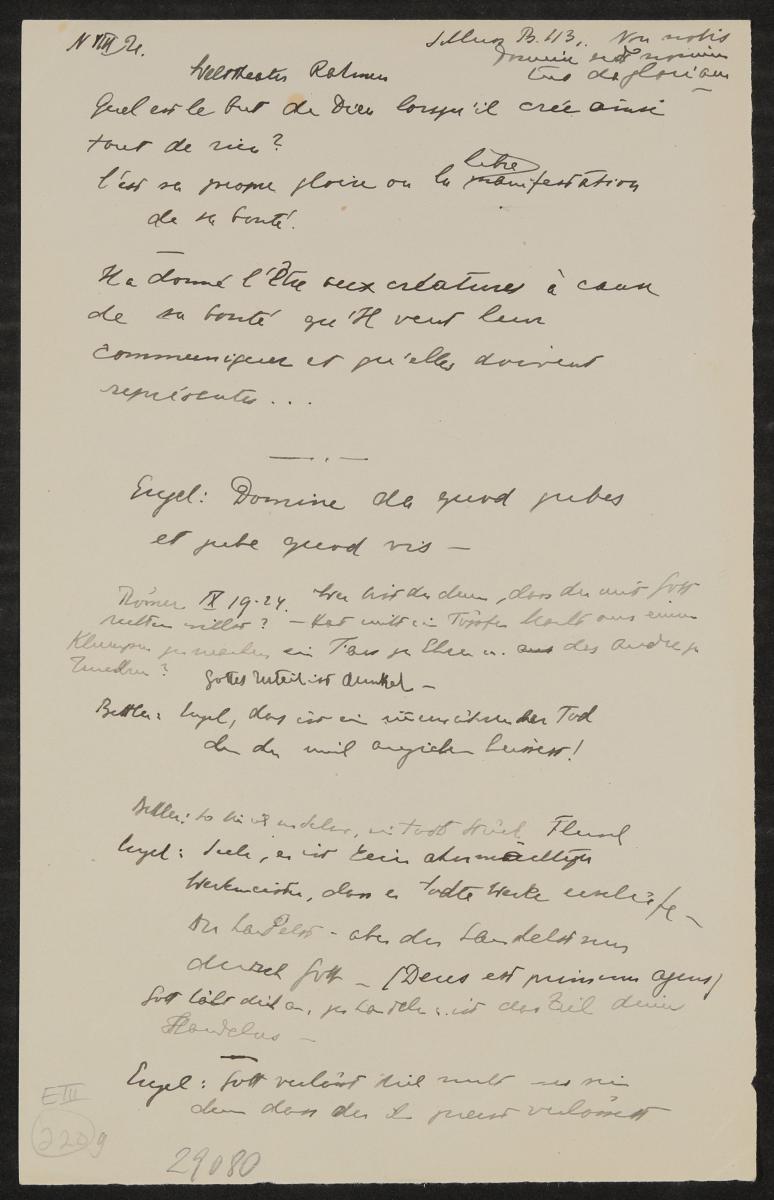 N VIII 21.
Schluss B. 43, Non nobis
Domine sed nomini
tuo da gloriam
Welttheater Rahmen
Quel est le but de Dieu lorsqu'il crée ainsi
tout de rien?
C'est sa propre gloire ou la libre manifestation
de sa bonté.
Il a donné l'Être aux créatures à cause
de sa bonté qu'Il veut leur
communiquer et qu'elles doivent
représenter . . .
Engel: Domine da quod jubes
et jube quod vis —
Römer IX 19-24. Wer bist du denn, dass du mit Gott
rechten willst? — Hat nicht ein Töpfer Macht aus einem
Klumpen zu machen ein Fass zu Ehren u. das andre zu
Unehren? Gottes Urteil ist dunkel —
Bettler: Engel, das ist ein Tod
den du mich anziehen heissest!
Bettler: So bin ich ein todt Stück Fleisch
Engel: Sieh, es ist kein ohnmächtiger
Werkmeister, dass er todte Werke erschüfe —
Du handelst - aber du handelst nur
durch Gott — (Deus est primum agens)
Gott zu handeln u. ist das Ziel deines
Handelns —
Engel: Gott verlässt dich nicht es sei
denn dass du ihn zuerst verlässest
E III
220 g
29080